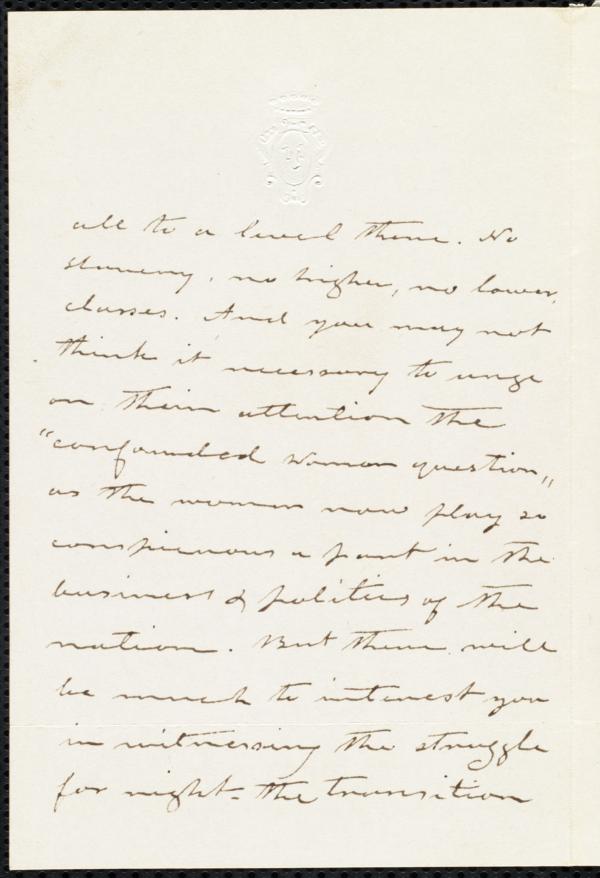 all to a level there. No
slavery, no higher, no lower,
classes. And you may not
think it necessary to urge
on their attention the
"confounded woman question"
as the women now play so
conspicuous a part in the
business & politics of the
nation. But there will
be much to interest you
in witnessing the struggle
for right - the transition